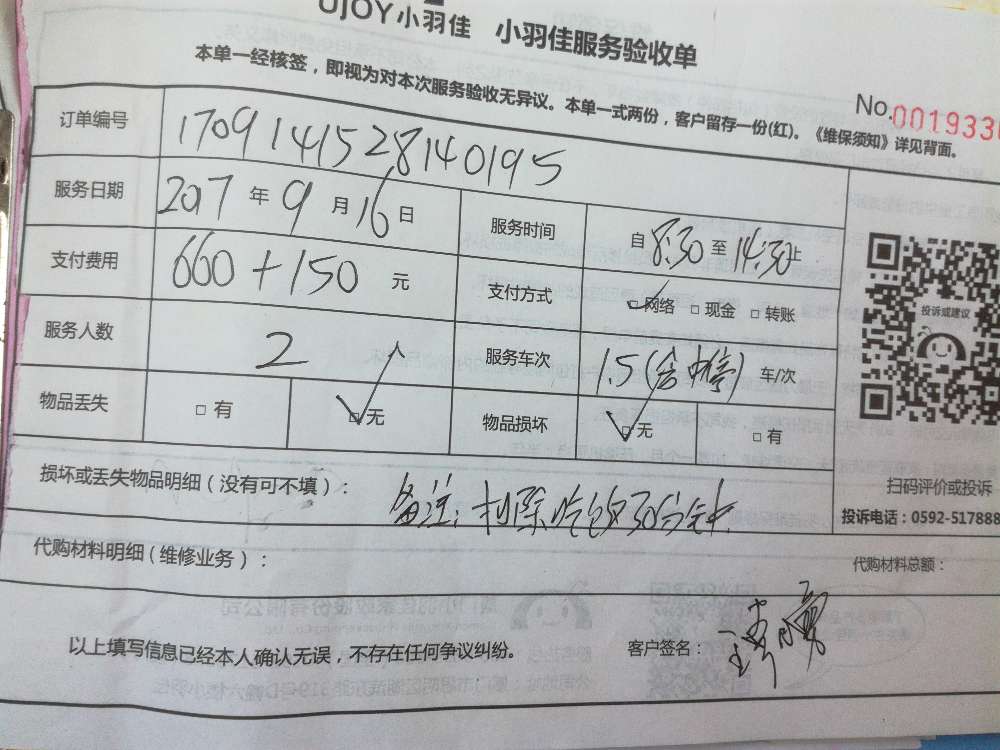 UJOY小羽佳 小羽佳服务验收单
本单一经核签，即视为对本次服务验收无异议。本单一式两份，客户留存一份(红)。《维保须知》详见背面。
No.001933
订单编号 1709141528140195
服务日期 2017 年 9 月 16 日 服务时间 自 8:30 至 14:30止
支付费用 660+150 元 支付方式 □网络 □现金 □转账
服务人数 2 人 服务车次 1.5(含 车/次
物品丢失 □有 □无 物品损坏 □无 □有
投诉或建议
扫码评价或投诉
投诉电话：0592-517888
损坏或丢失物品明细（没有可不填）： 备注：扣除吃饭30分钟
代购材料明细（维修业务）： 代购材料总额：
以上填写信息已经本人确认无误，不存在任何争议纠纷。 客户签名：